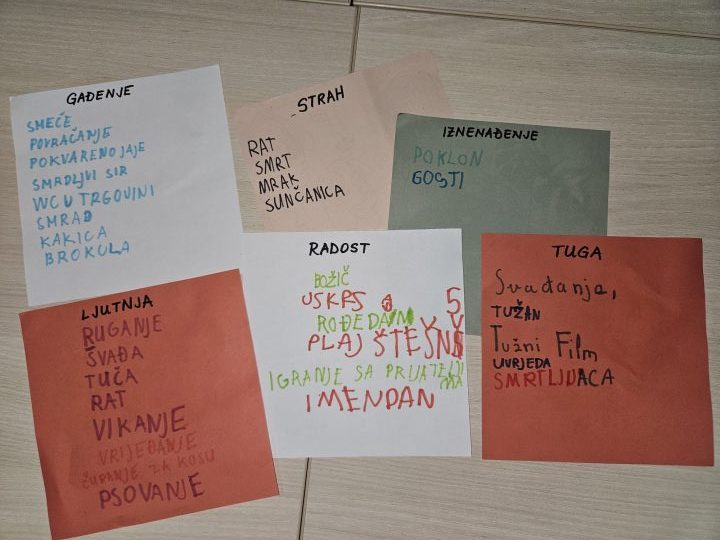 GAĐENJE
SMEĆE
POVRAĆANJE
POKVARENO JAJE
SMRDLJIVI SIR
WC U TRGOVINI
SMRAD
KAKICA
BROKULA
STRAH
RAT
SMRT
MRAK
SUNČANICA
IZNENAĐENJE
POKLON
GOSTI
LJUTNJA
RUGANJE
ŠVAĐA
TUČA
RAT
VIKANJE
VRIJEĐANJE
ČUPANJE ZA KOSU
PSOVANJE
RADOST
BOŽIČ
USKRS
5
ROĐEDAN
PLAJ ŠTEŠN
IGRANJE SA PRIJATELJI
MA
IMENDAN
TUGA
Svađanja,
TUŽAN
Tužni Film
UVRJEDA
SMRTLJUACA